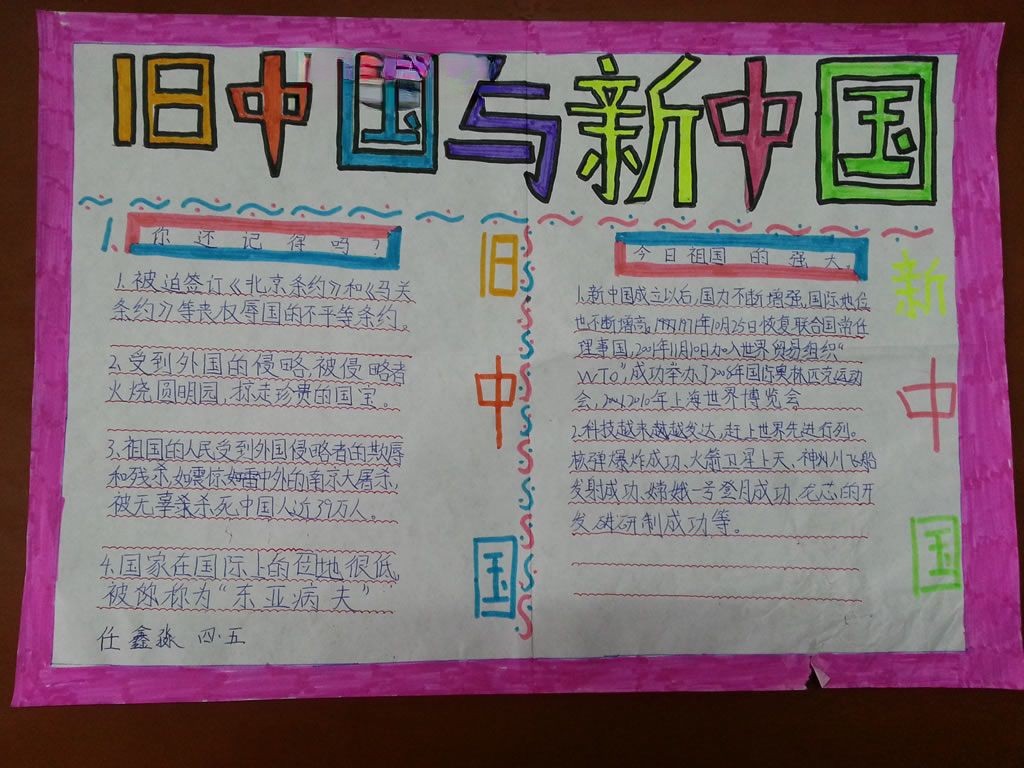 旧中国与新中国
1.你还记得吗?
1.被迫签订《北京条约》和《马关
条约》等丧权辱国的不平等条约。
2.受到外国的侵略,被侵略者
火烧圆明园,掠走珍贵的国宝。
3.祖国的人民受到外国侵略者的欺辱
和残杀,如震惊中外的南京大屠杀,
被无辜杀死中国人近39万人。
4.国家在国际上的地位很低,
被你称为“东亚病夫”
任鑫 四·五
旧
中
国
今日祖国的强大。
1.新中国成立以后,国力不断增强,国际地位
也不断增高,1971年10月25日恢复联合国常任
理事国,2001年11月10日加入世界贸易组织“
WTO”,成功举办了2008年国际奥林匹克运动
会,2010年上海世界博览会
2.科技越来越发达,赶上世界先进行列。
核弹爆炸成功、火箭卫星上天、神州飞船
发射成功、嫦娥一号登月成功、芯的开
发研制成功等。
新
中
国